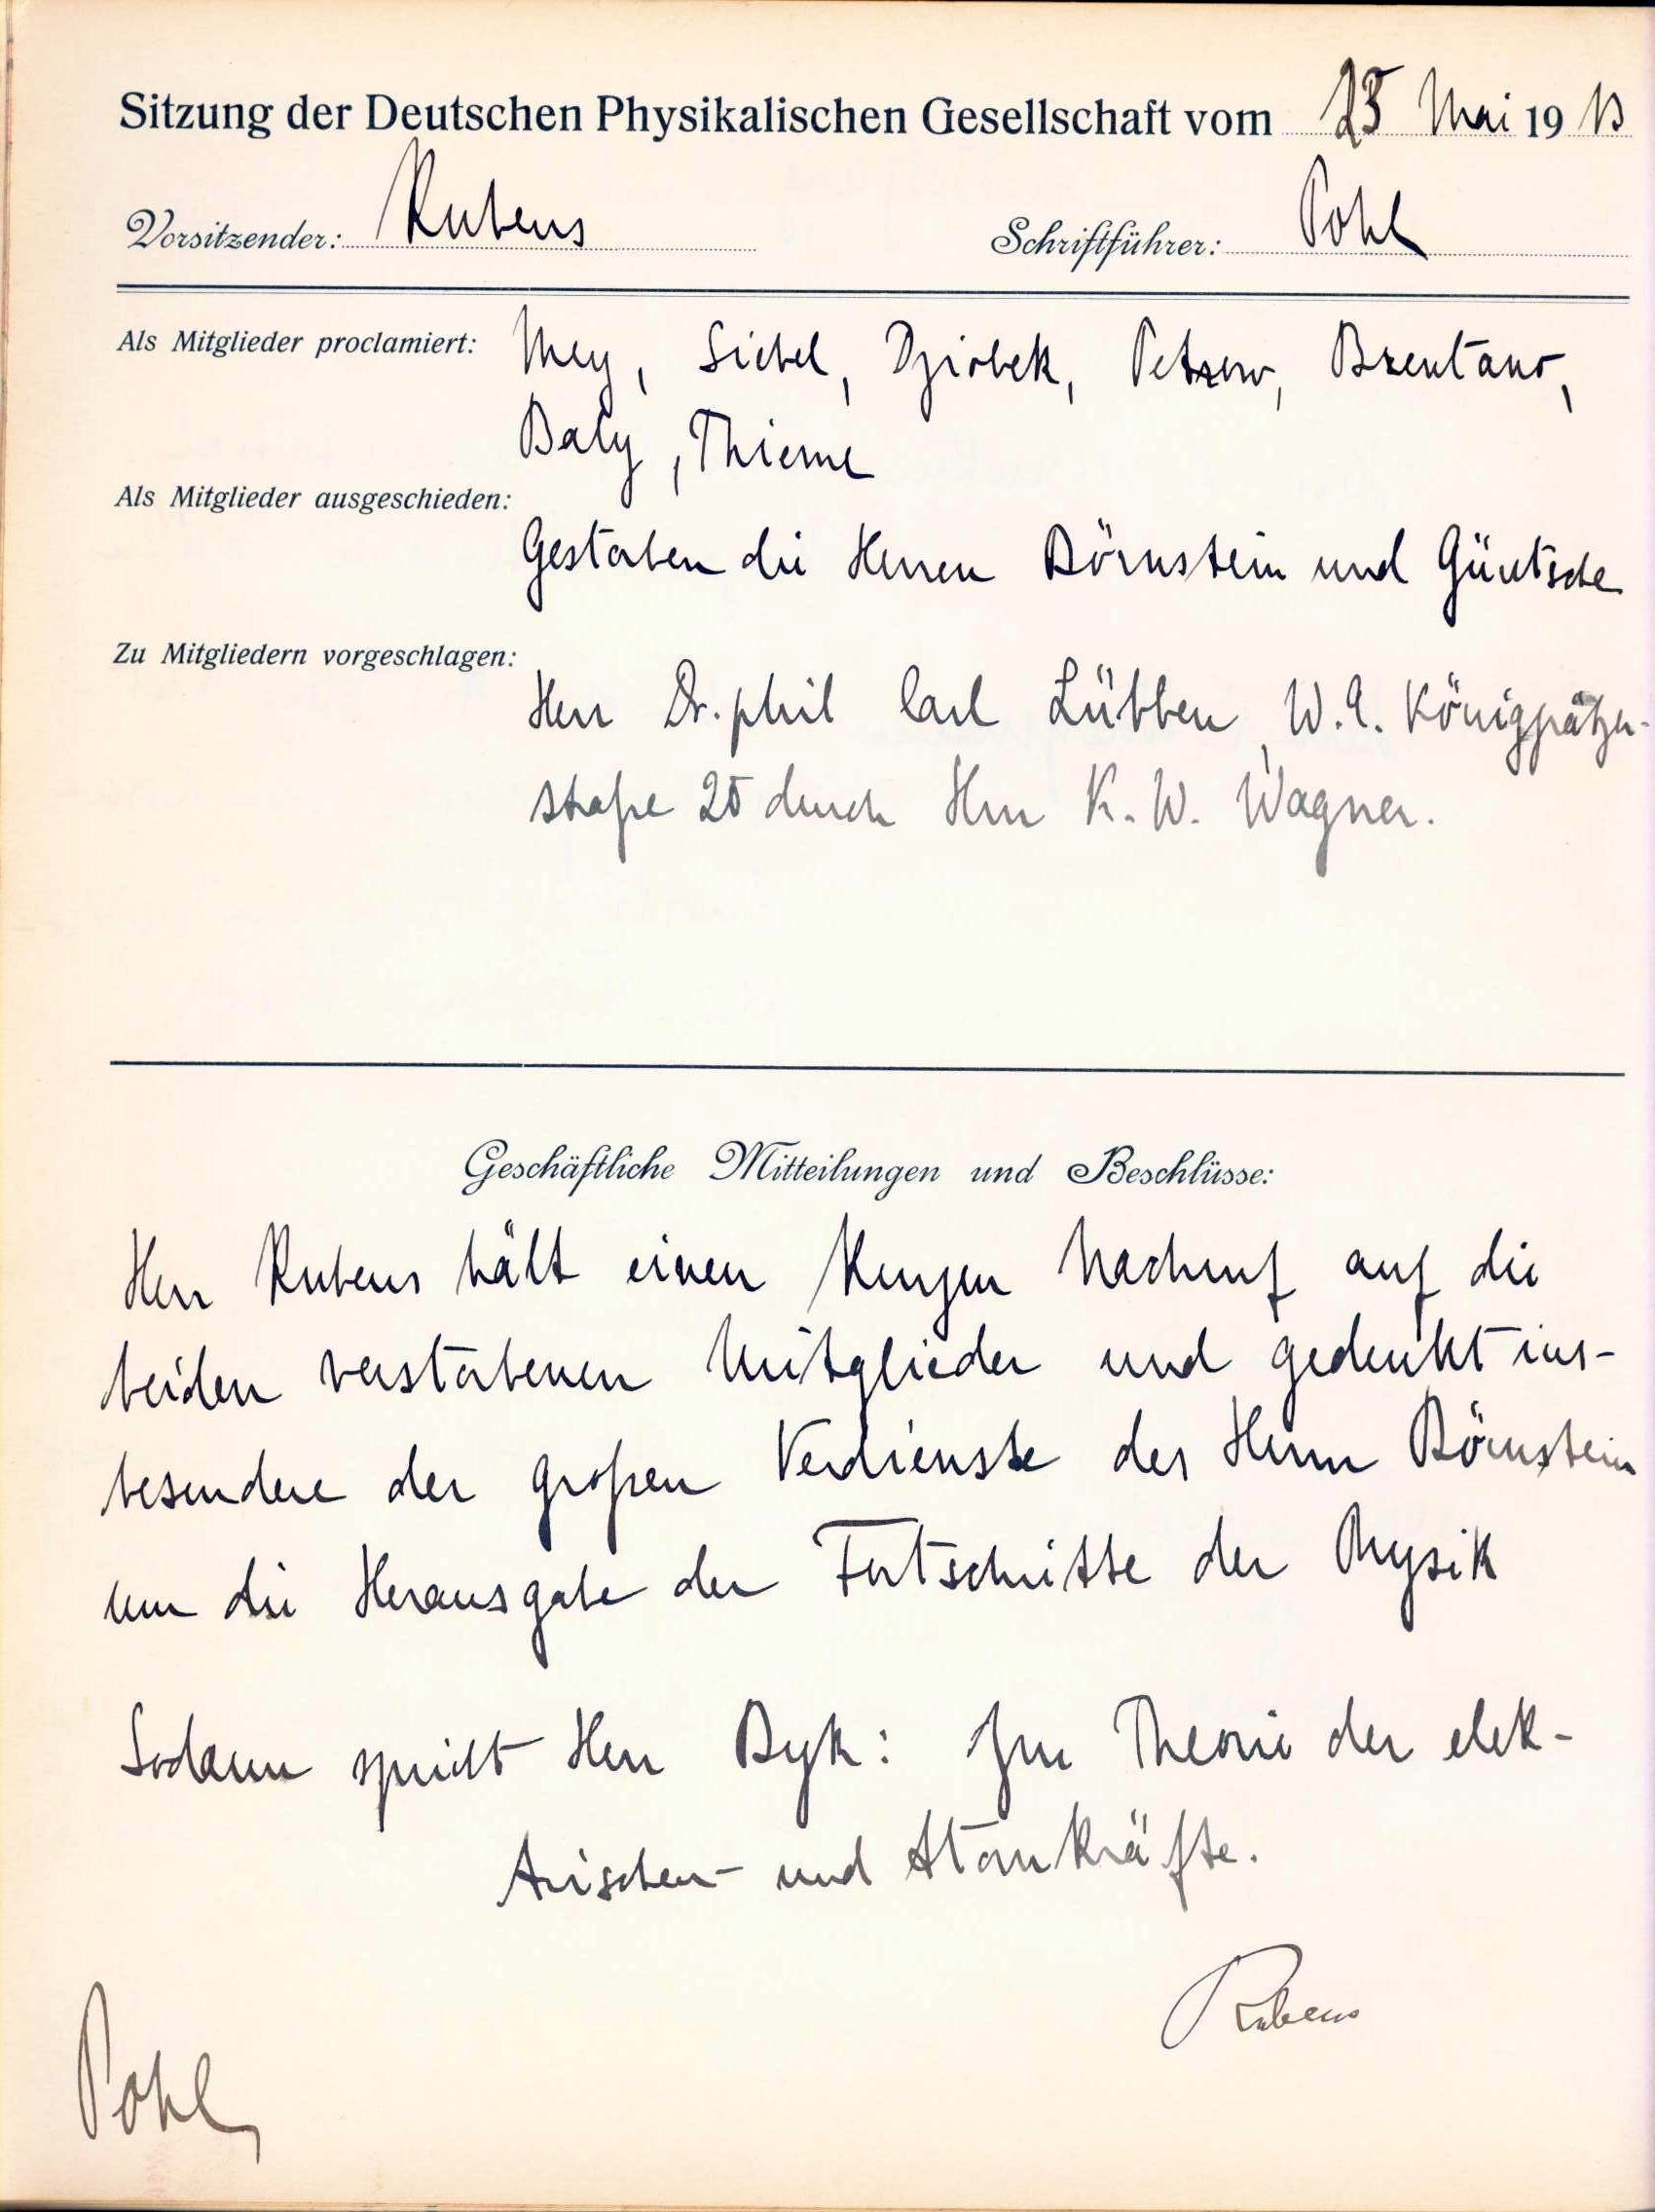 Sitzung der Deutschen Physikalischen Gesellschaft vom 23 Mai 1913
Vorsitzender: Rubens Schriftführer: Pohl
Als Mitglieder proclamiert: Mey, Siebel, Dziobek, Brentano,
Baly, Thieme
Als Mitglieder ausgeschieden:
Gestorben die Herren Börnstein und Güntsche
Zu Mitgliedern vorgeschlagen:
Herr Dr. phil Carl Lübben, W. 9. Königgrätzer-
straße 25 durch Hrn K. W. Wagner.
Geschäftliche Mitteilungen und Beschlüsse:
Herr Rubens hält einen kurzen Nachruf auf die
beiden verstorbenen Mitglieder und gedenkt ins-
besondere der großen Verdienste des Herrn Börnstein
um die Herausgabe der Fortschritte der Physik
Sodann spricht Herr Byk: Zur Theorie der elek-
trischen- und Atomkräfte.
Rubens
Pohl